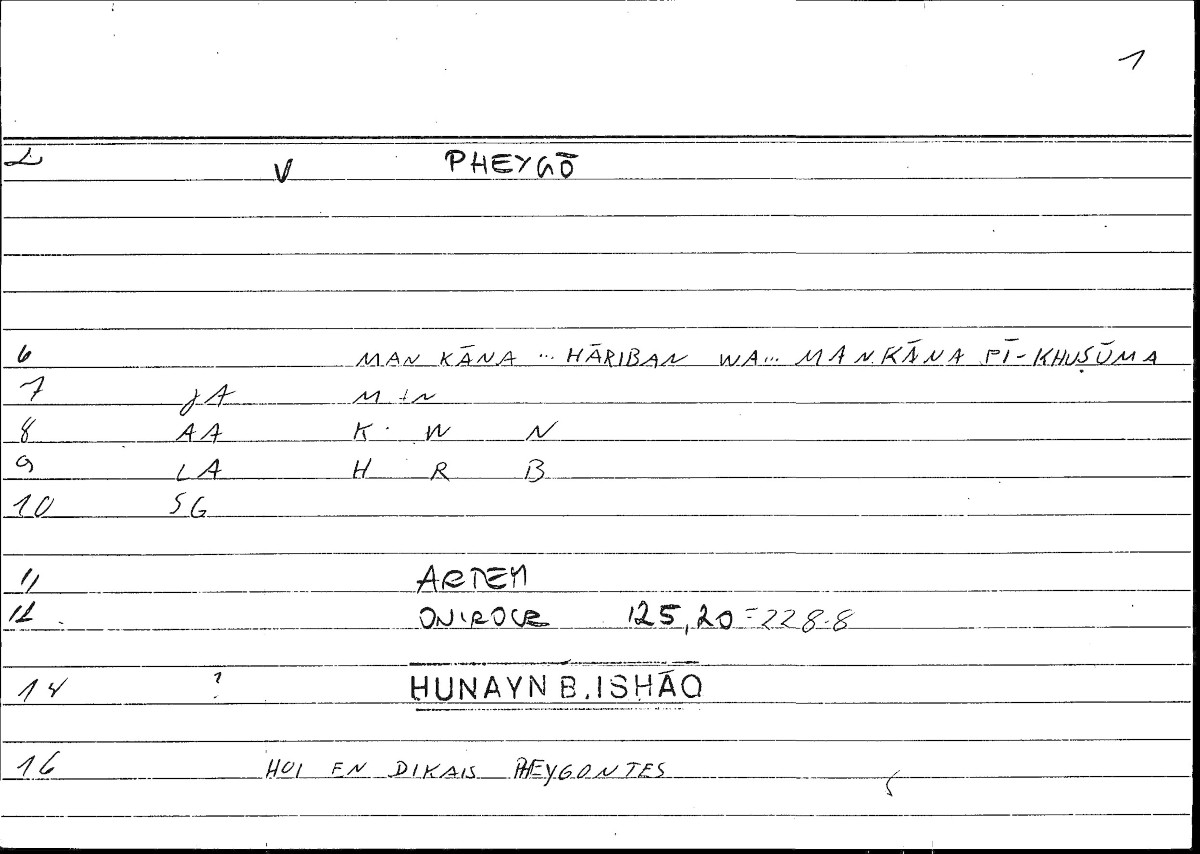 1
2 V PHEYGŌ
6 MAN KĀNA ... HĀRIBAN WA... MAN KĀNA FĪ-KHUṢŪMA
7 JA MIN
8 AA K W N
9 LA H R B
10 SG
11 ARTEM
12 ONIROCR 125,20 = 228.8
14 ? HUNAYN B. ISHĀQ
16 HOI EN DIKAIS PHEYGONTES